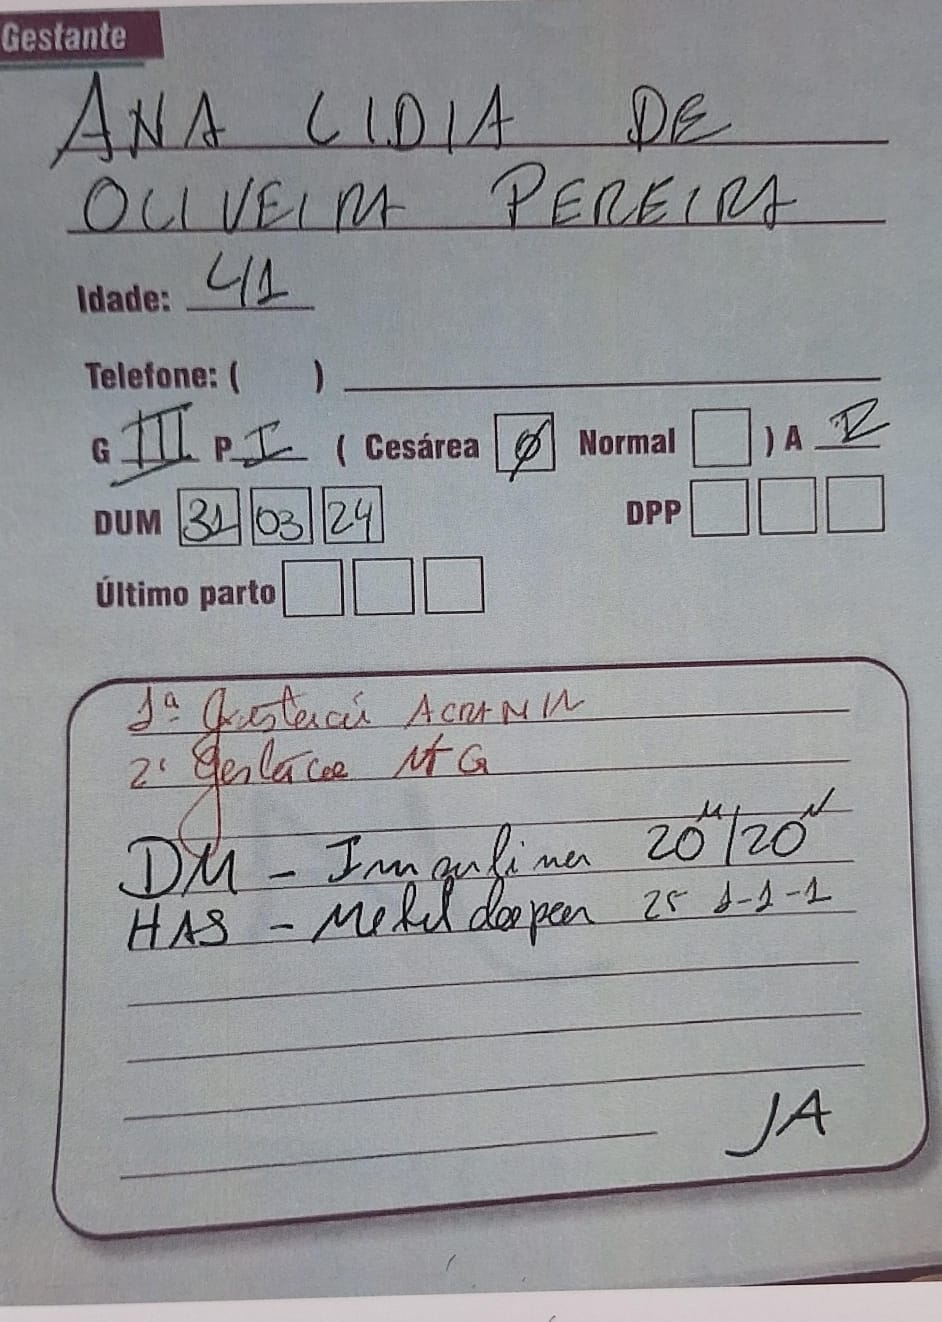 Gestante
ANA LIDIA DE
OLIVEIRA PEREIRA
Idade: 41
Telefone: ( )
G III P I ( Cesárea Normal ) A
DUM 31 03 24 DPP
Último parto
1ª Gestacai ACRANIA
2ª Gestacao
DM - Insulina 20 / 20
HAS - Metildopa 25 1-1-1
JA